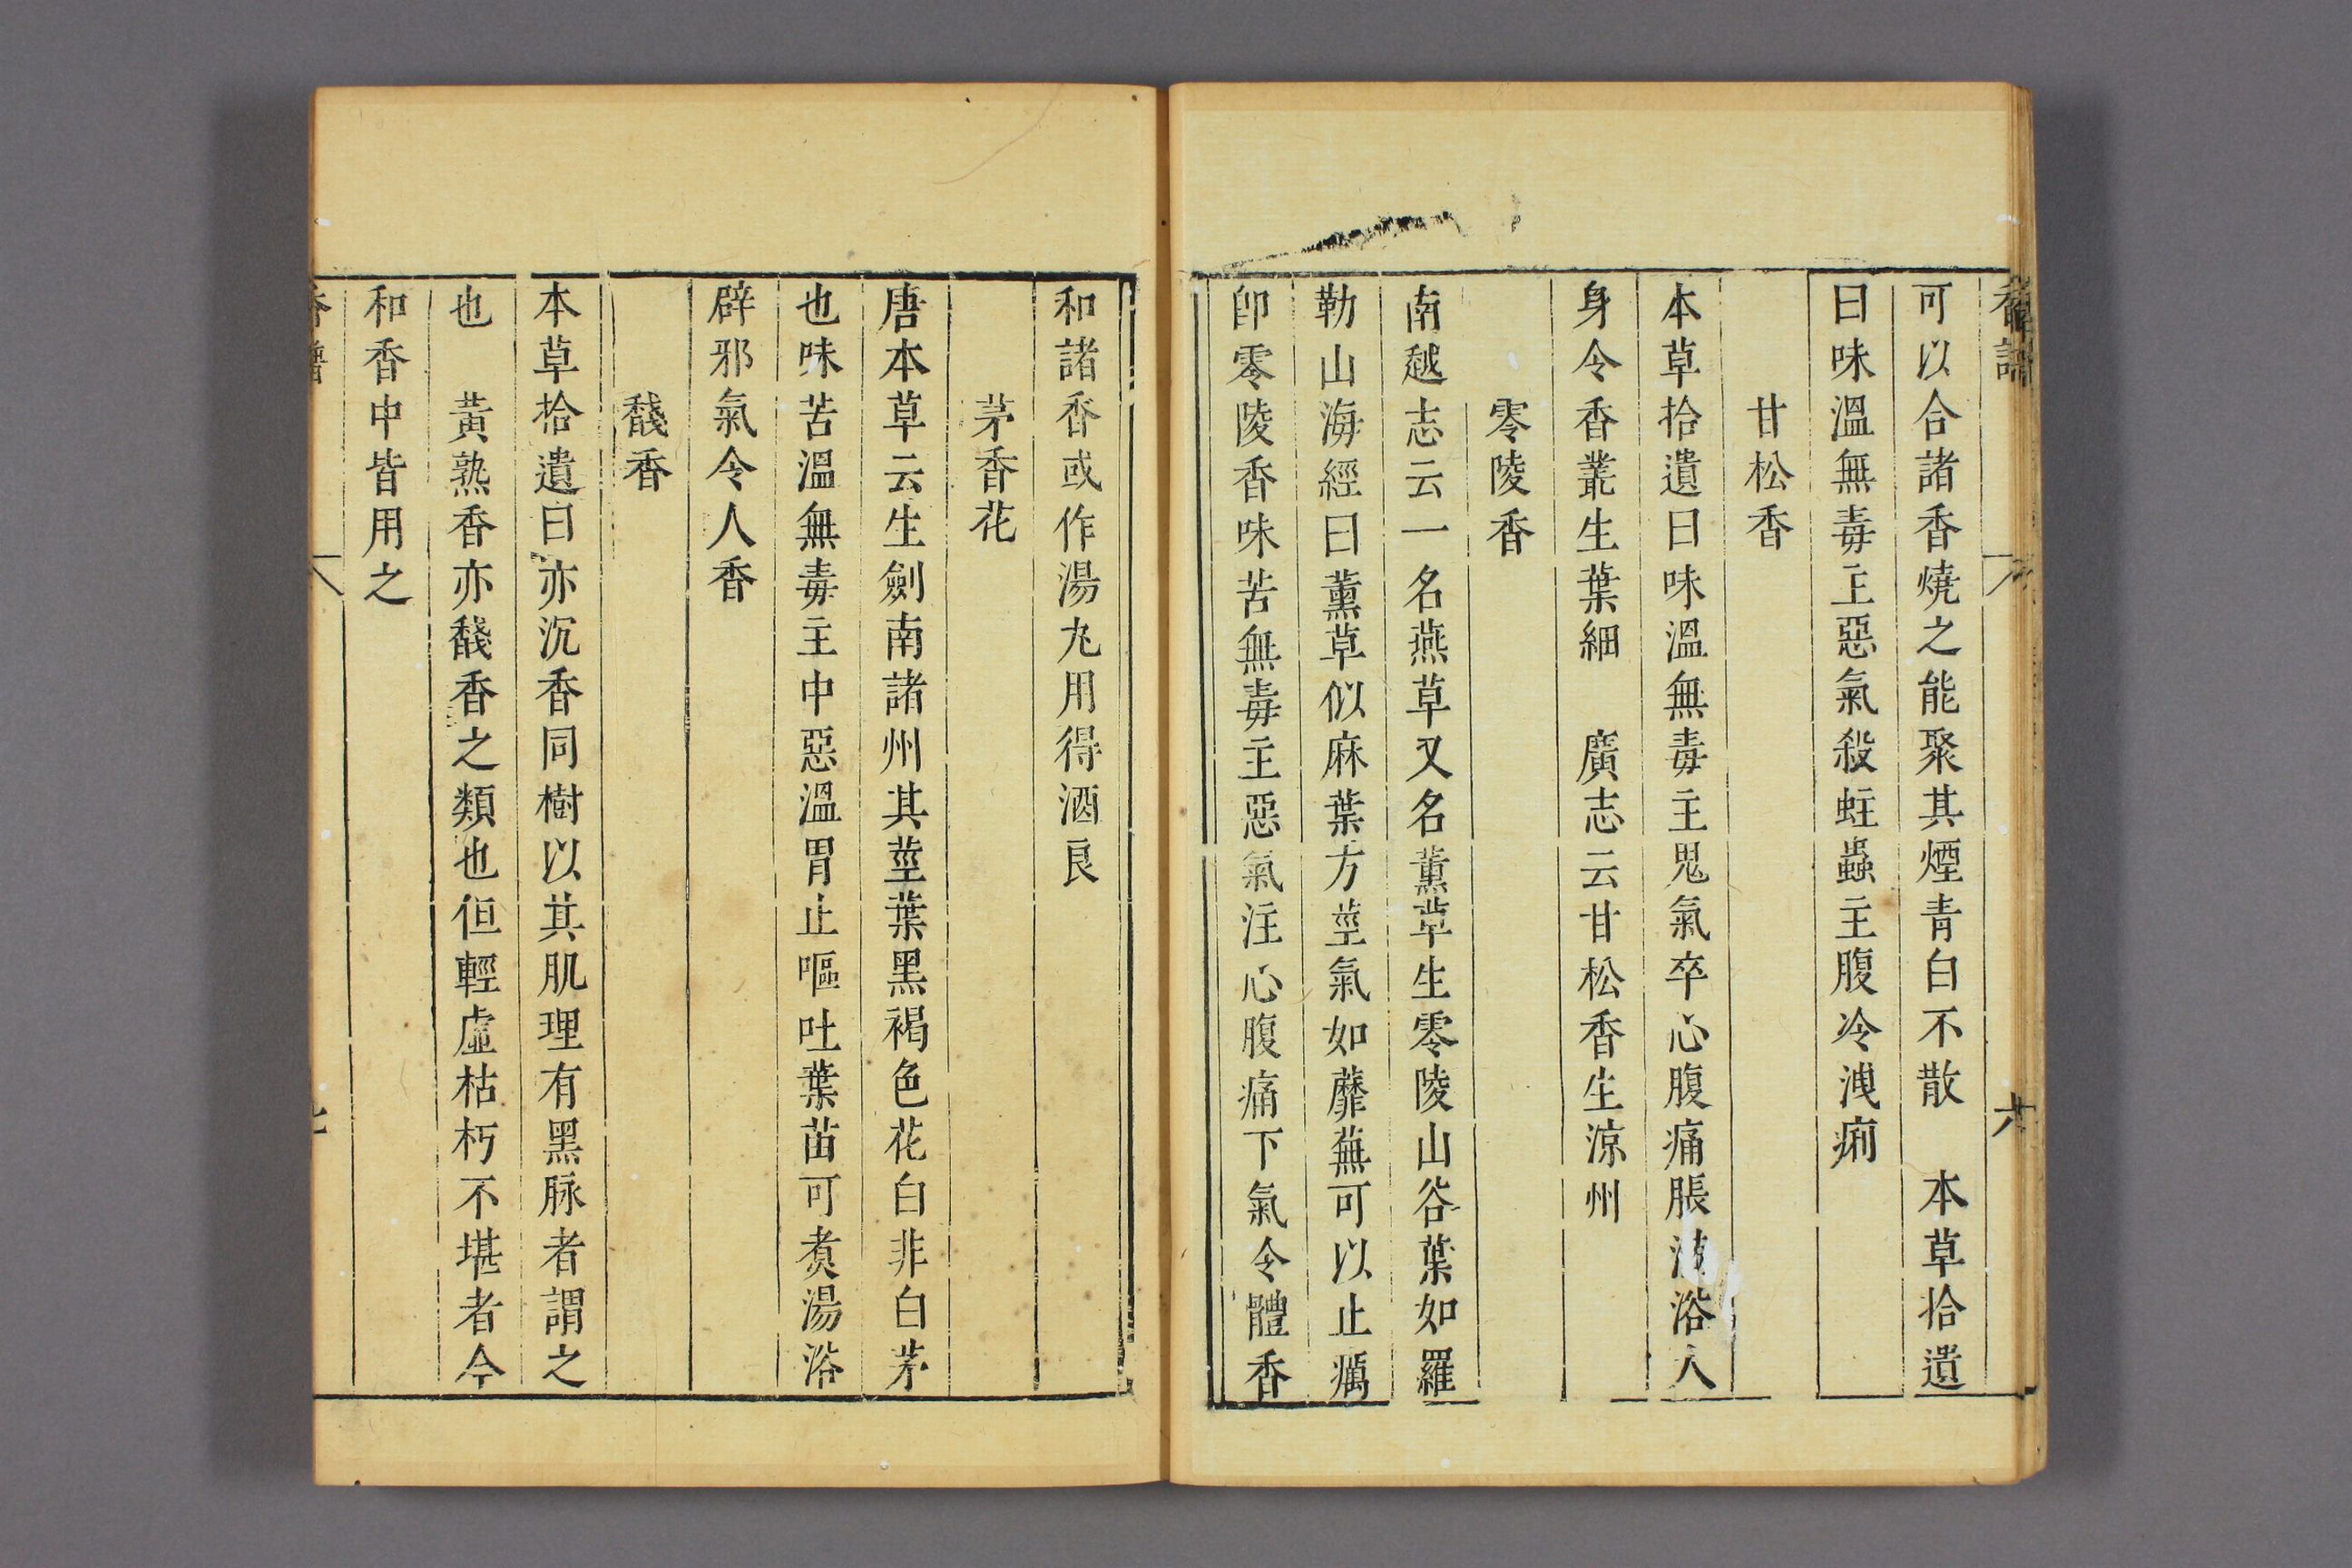 香譜
六
可以合諸香燒之能聚其煙青白不散　本草拾遺
曰味溫無毒主惡氣殺蛀蟲主腹冷洩痢
甘松香
本草拾遺曰味溫無毒主鬼氣卒心腹痛脹浴人
身令香叢生葉細　廣志云甘松香生涼州
零陵香
南越志云一名燕草又名薰草生零陵山谷葉如羅
勒山海經曰薰草似麻葉方莖氣如蘼蕪可以止癘
卽零陵香味苦無毒主惡氣注心腹痛下氣令體香
和諸香或作湯丸用得酒良
茅香花
唐本草云生劍南諸州其莖葉黑褐色花白非白茅
也味苦溫無毒主中惡溫胃止嘔吐葉苗可煑湯浴
辟邪氣令人香
馢香
本草拾遺曰亦沉香同樹以其肌理有黑脉者謂之
也　黃熟香亦馢香之類也但輕虛枯朽不堪者今
和香中皆用之